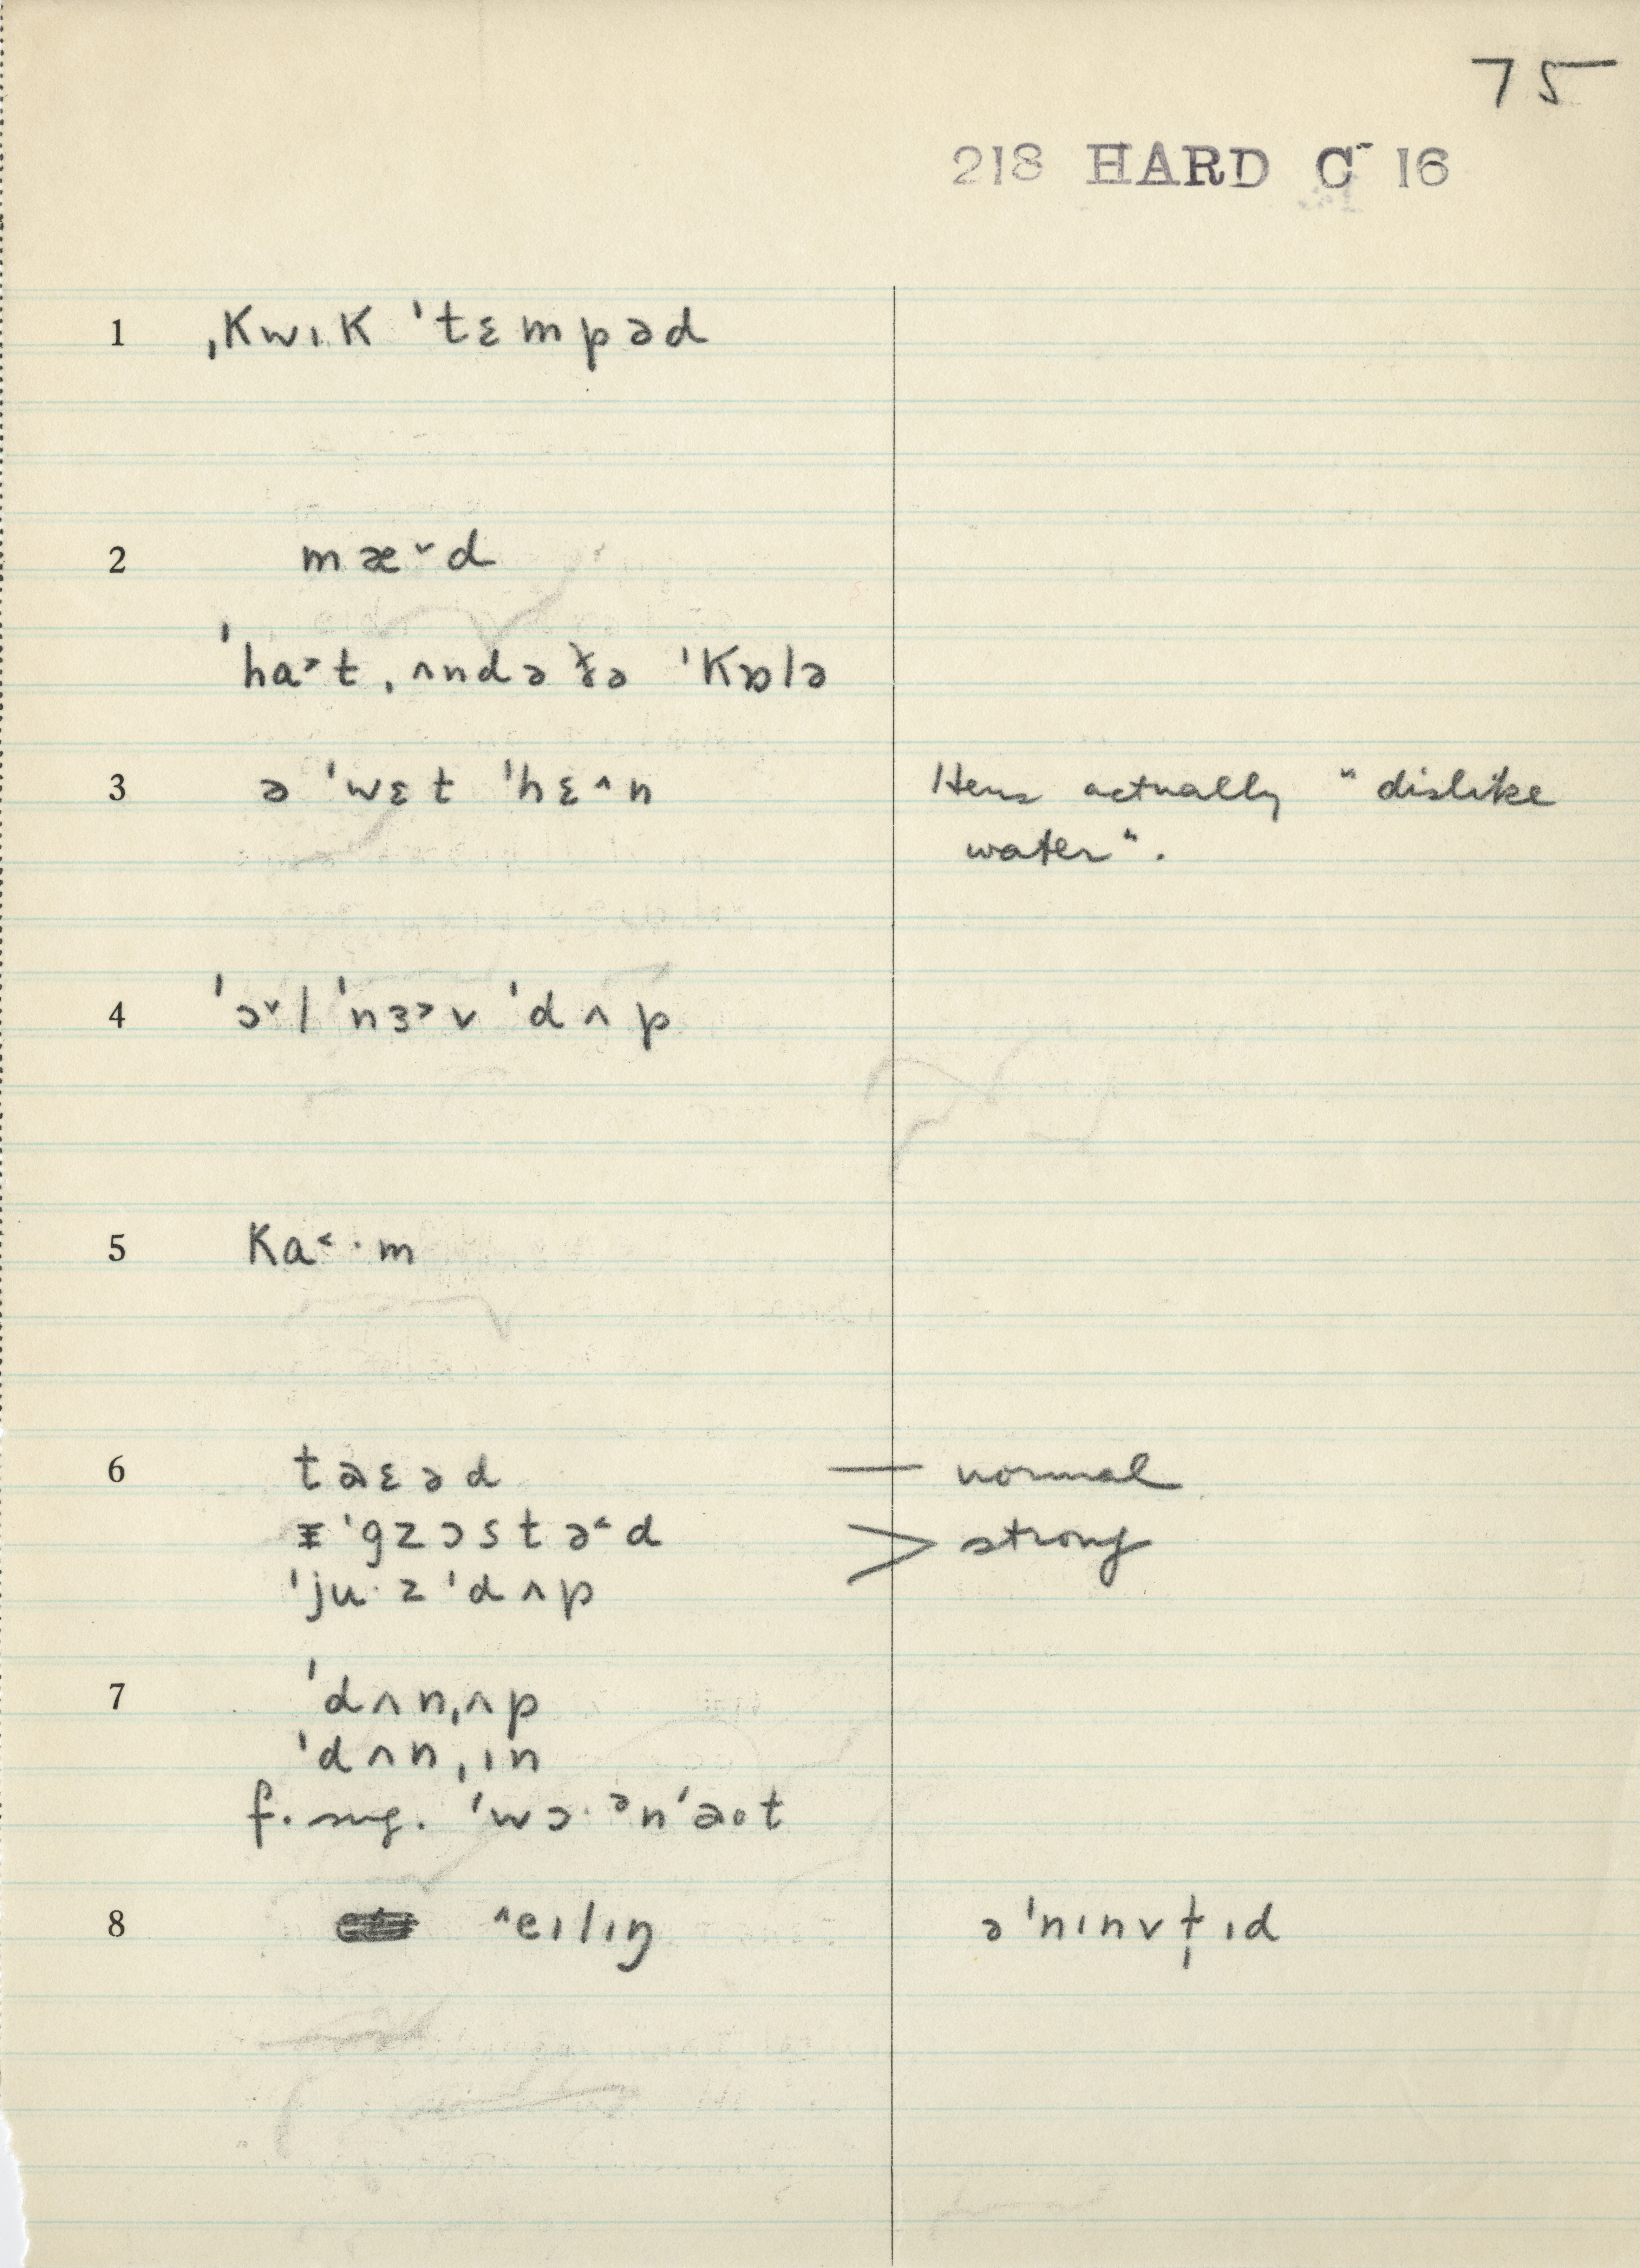 75
218 HARD C- 16
1 ˌkwɪk ˈtɛmpəd
2 mæ˅d
ˈha˃t ˌʌndə ðə ˈkɒlə
3 ə ˈwɛt ˈhɛ˄n Hens actually "dislike
water".
4 ˈɔ˅l ˈnɜ˃v ˈdʌp
5 ka˂·m
6 taɛəd — normal
ɪ ˈgzɔstə˂d > strong
ˈju·zˈdʌp
7 ˈdʌnˌʌp
ˈdʌnˌɪn
f. sug. ˈwɔ·ᵊnˈaot
8 ˄eɪlɪŋ